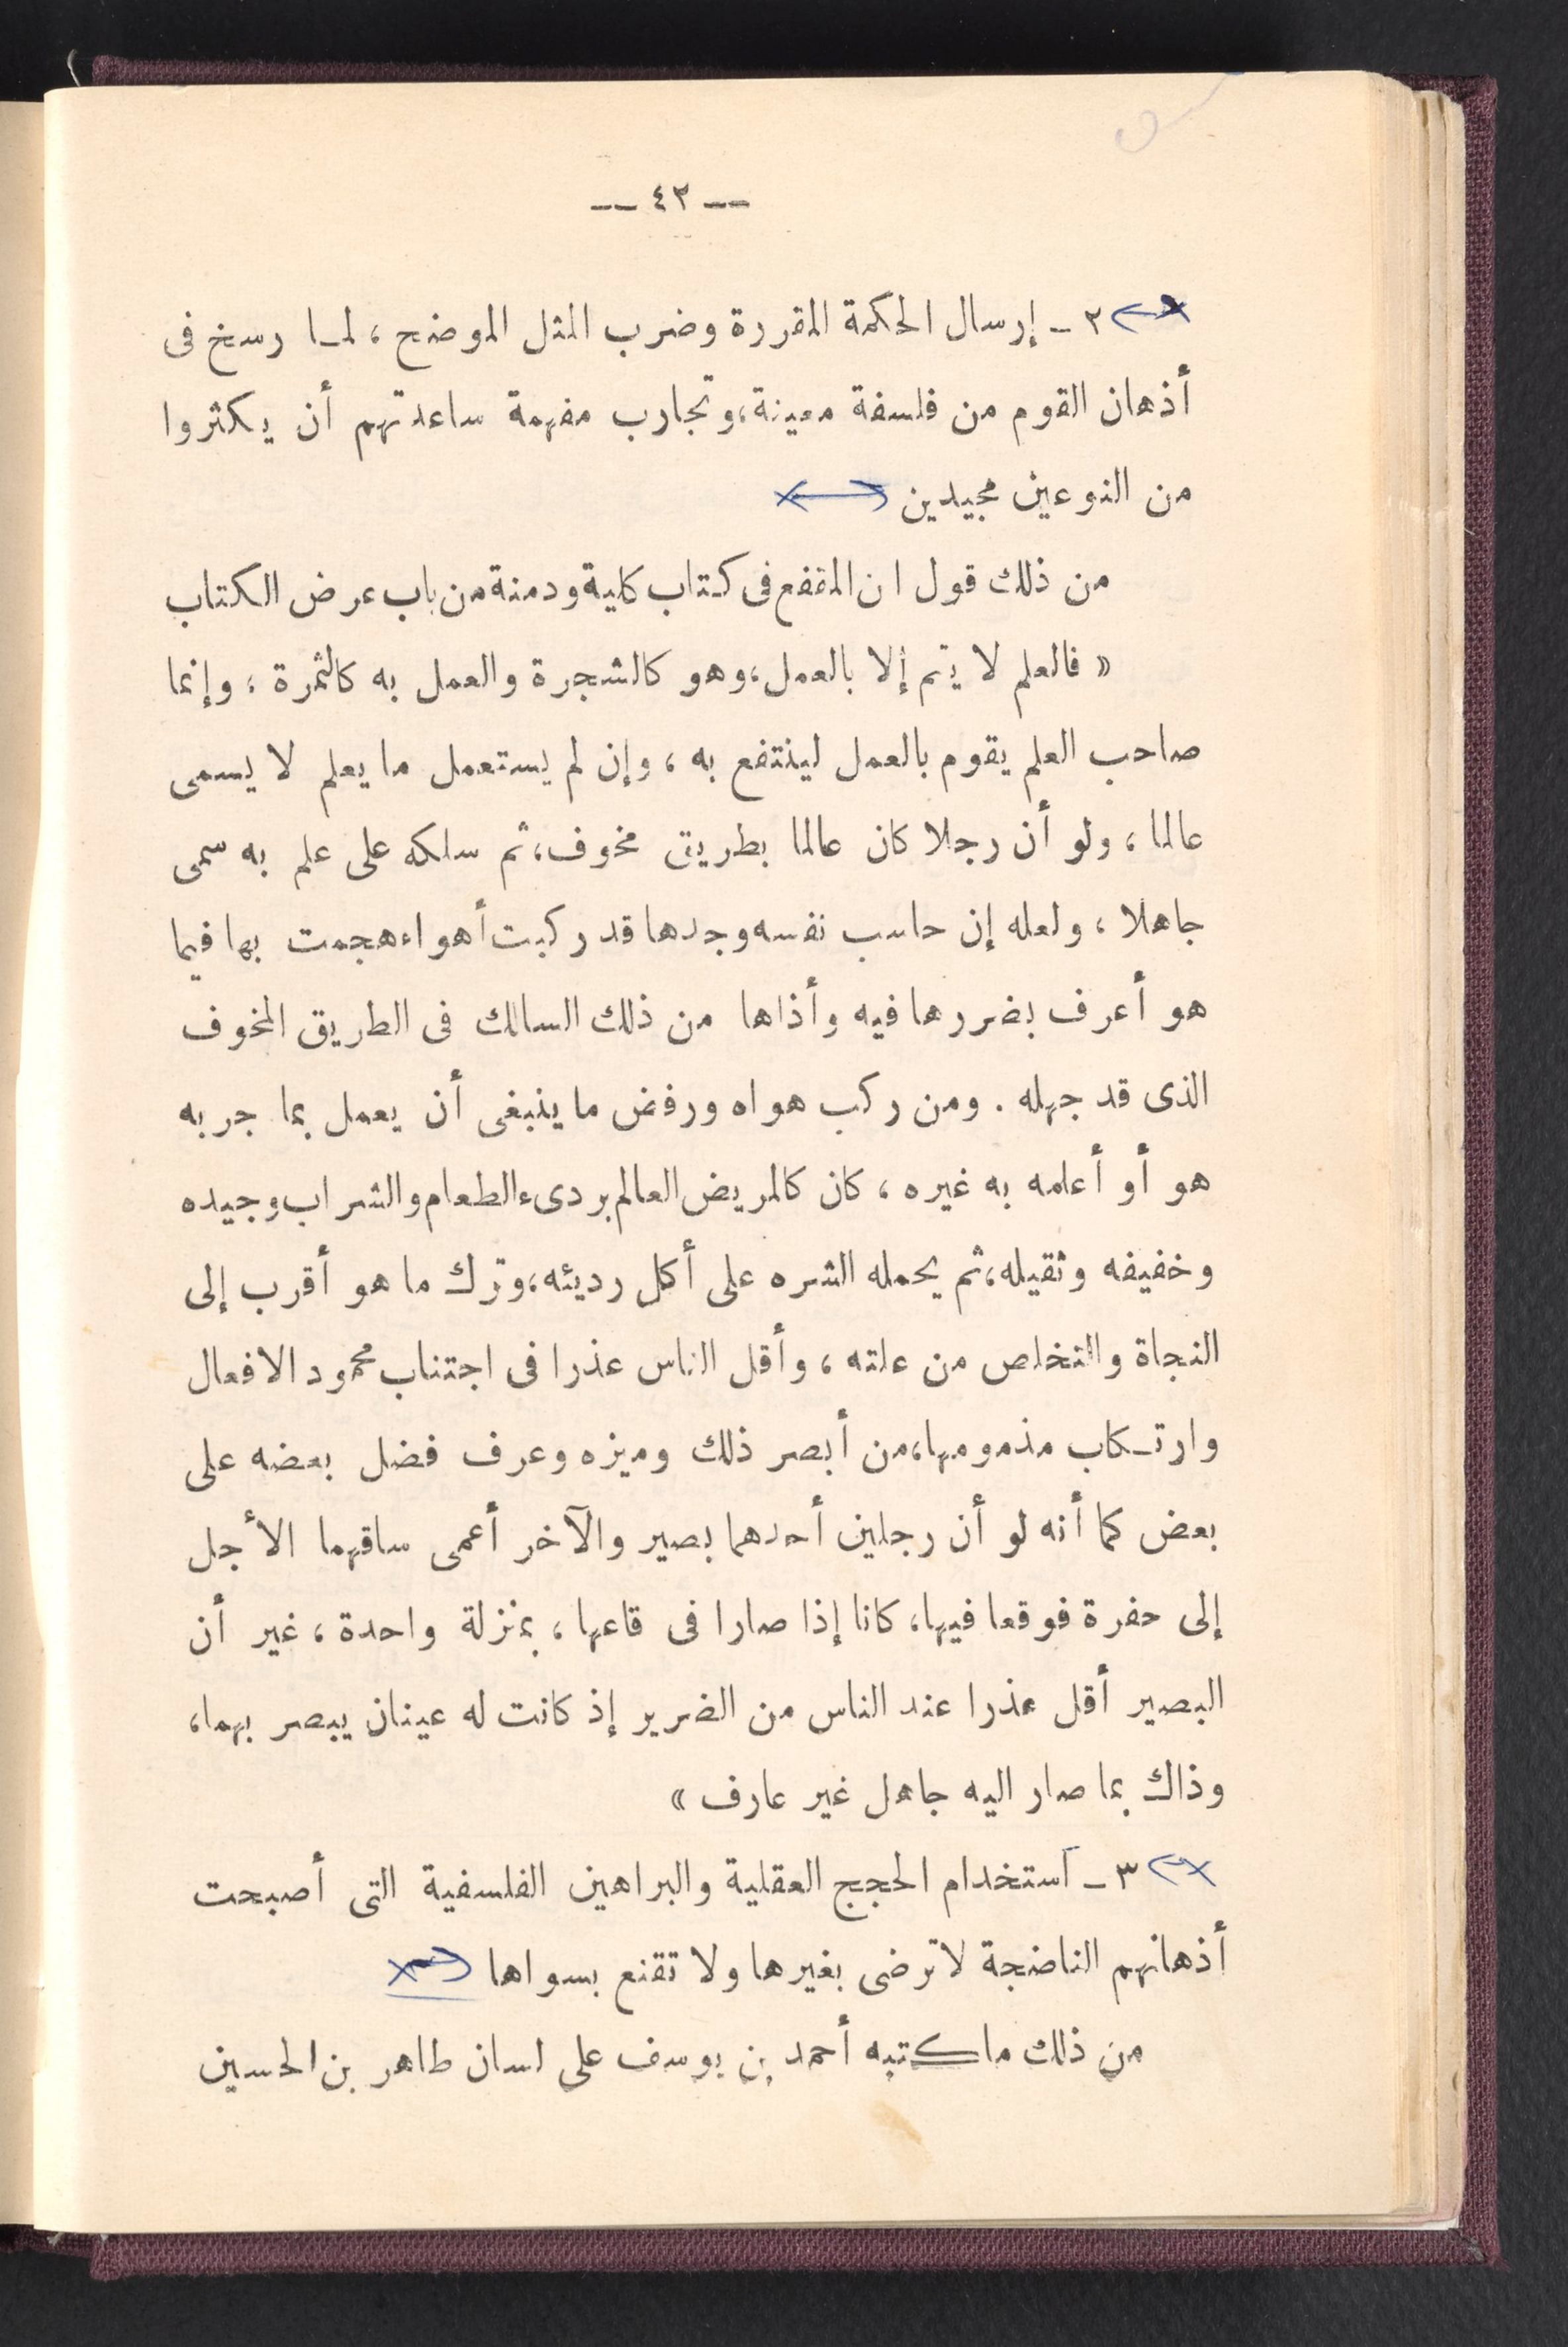 — ٤٢ —
٢ - إرسال الحكمة المقررة وضرب المثل الموضح ، لما رسخ فى
أذهان القوم من فلسفة معينة، وتجارب مفهمة ساعدتهم أن يكثروا
من النوعين مجيدين
من ذلك قول ان المقفع فى كتاب كليلة ودمنة من باب عرض الكتاب
« فالعلم لا يتم إلا بالعمل، وهو كالشجرة والعمل به كالثمرة ، وإنما
صاحب العلم يقوم بالعمل لينتفع به ، وإن لم يستعمل ما يعلم لا يسمى
عالما ، ولو أن رجلا كان عالما بطريق مخوف، ثم سلكه على علم به سمى
جاهلا ، ولعله إن حاسب نفسه وجدها قد ركبت أهواء هجمت بها فيما
هو أعرف بضررها فيه وأذاها من ذلك السالك فى الطريق المخوف
الذى قد جهله . ومن ركب هواه ورفض ما ينبغى أن يعمل بما جربه
هو أو أعلمه به غيره ، كان كالمريض العالم بردىء الطعام والشراب وجيده
وخفيفه وثقيله، ثم يحمله الشره على أكل رديئه، وترك ما هو أقرب إلى
النجاة والتخلص من علته ، وأقل الناس عذرا فى اجتناب محمود الافعال
وارتكاب مذمومها، من أبصر ذلك وميزه وعرف فضل بعضه على
بعض كما أنه لو أن رجلين أحدهما بصير والآخر أعمى ساقهما الأجل
إلى حفرة فوقعا فيها، كانا إذا صارا فى قاعها ، بمنزلة واحدة ، غير أن
البصير أقل عذرا عند الناس من الضرير إذ كانت له عينان يبصر بهما،
وذاك بما صار اليه جاهل غير عارف »
٣ - استخدام الحجج العقلية والبراهين الفلسفية التى أصبحت
أذهانهم الناضجة لا ترضى بغيرها ولا تقنع بسواها
من ذلك ما كتبه أحمد بن يوسف على لسان طاهر بن الحسين